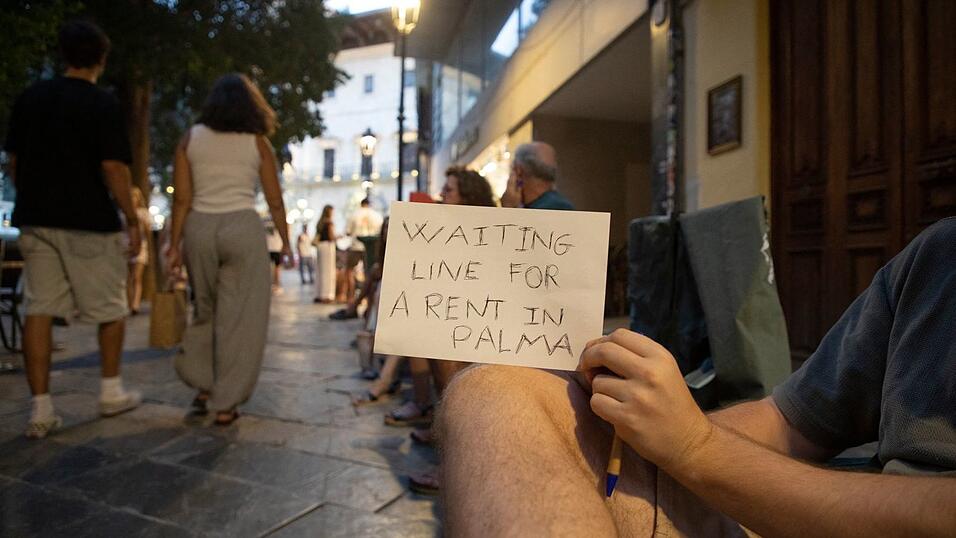 WAITING
LINE FOR
A RENT IN
PALMA